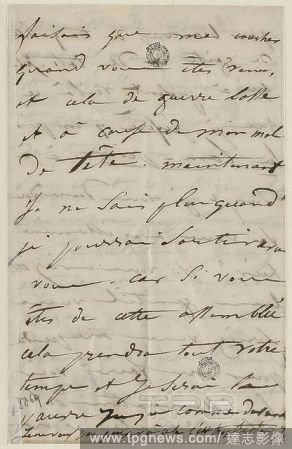 faisais que me coucher
quand vous êtes venu,
et cela de guerre lasse
et à cause de mon mal
de tête. maintenant
Je ne sais plus quand
je pourrai
vous car si vous
êtes de cette assemblée
cela prendra tout votre
temps et je serai la
pauvre comme devant
TPG
www.tpgnews.com 達志影像